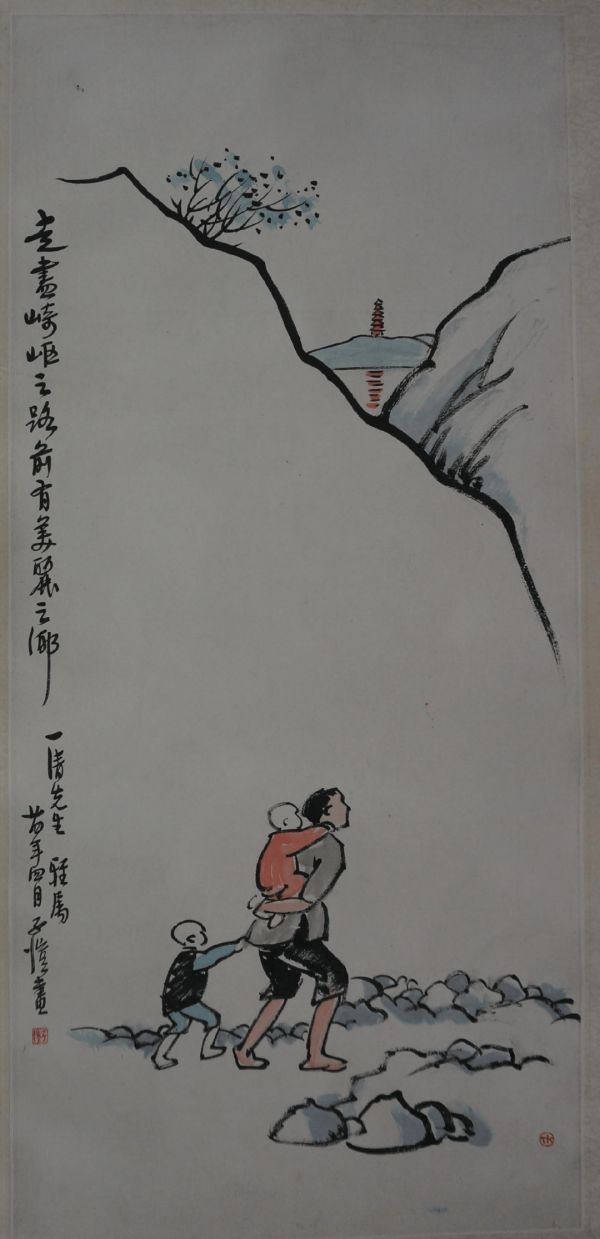 走盡崎岖之路前有美麗之鄉
一清先生 雅属
年四月 子愷畫
TK